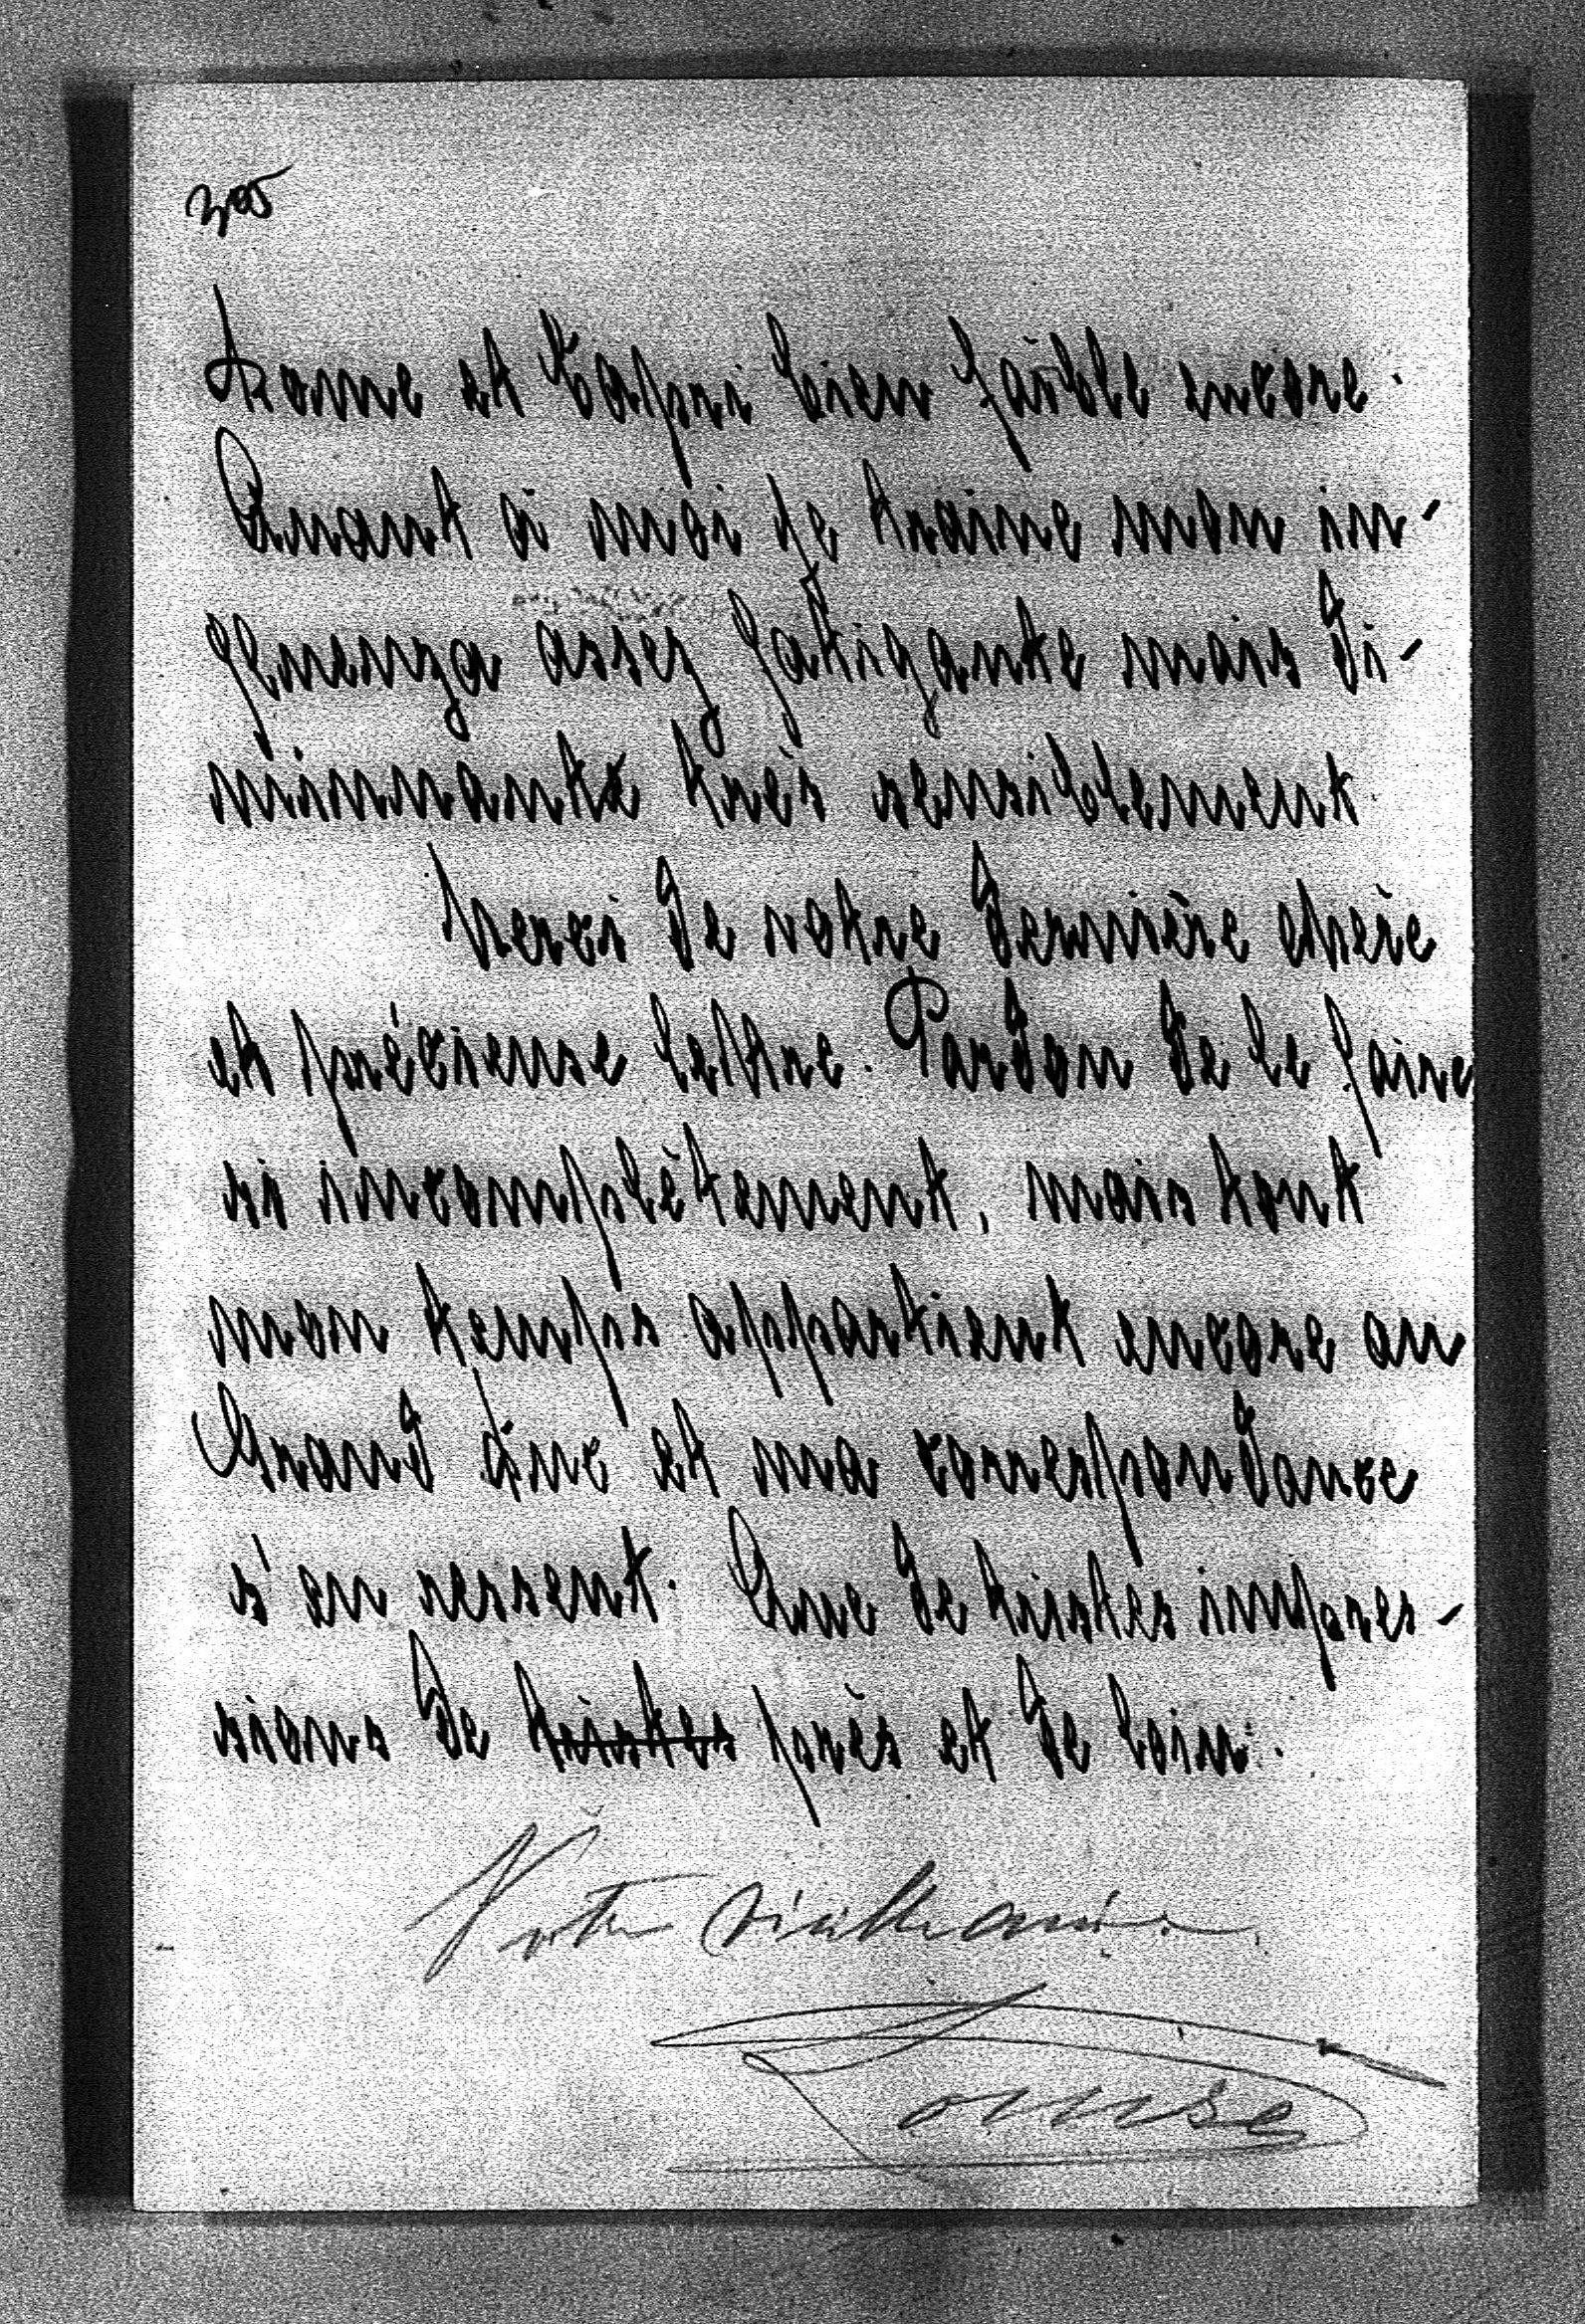 305
Rome et Capri bien faible encore.
Quant à moi je traine mon in-
fluenza assez fatigante mais di-
minuante très sensiblement
Merci de votre dernière chère
et précieuse lettre. Pardon de le faire
si incomplètement, mais tout
mon temps appartient encore au
Grand Duc et ma correspondance
s'en ressent. Que de tristes impres-
sions de tristes près et de loin.
Votre vieille amie
Louise